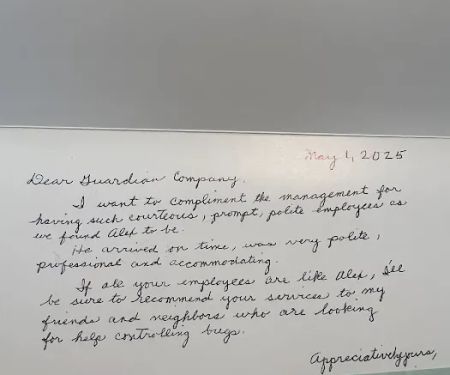 May 1, 2025
Dear Guardian Company.
I want to compliment the management for
having such courteous, prompt, polite employees as
we found Alex to be.
He arrived on time, was very polite,
professional and accommodating.
If all your employees are like Alex, I'll
be sure to recommend your services to my
friends and neighbors who are looking
for help controlling bugs.
Appreciatively yours,